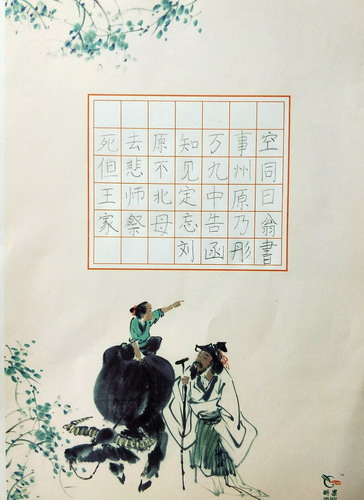 死去原知万事空
但悲不见九州同
王师北定中原日
家祭母忘告乃翁
刘函彤書